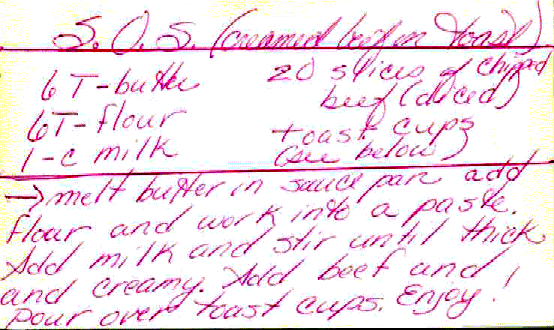 S.O.S. (creamed beef on toast)
6 T-butter
6T-flour
1-c milk
20 slices of chipped
beef (diced)
toast cups
(see below)
→ melt butter in sauce pan add
flour and work into a paste.
Add milk and stir until thick
and creamy. Add beef and
pour over toast cups. Enjoy!